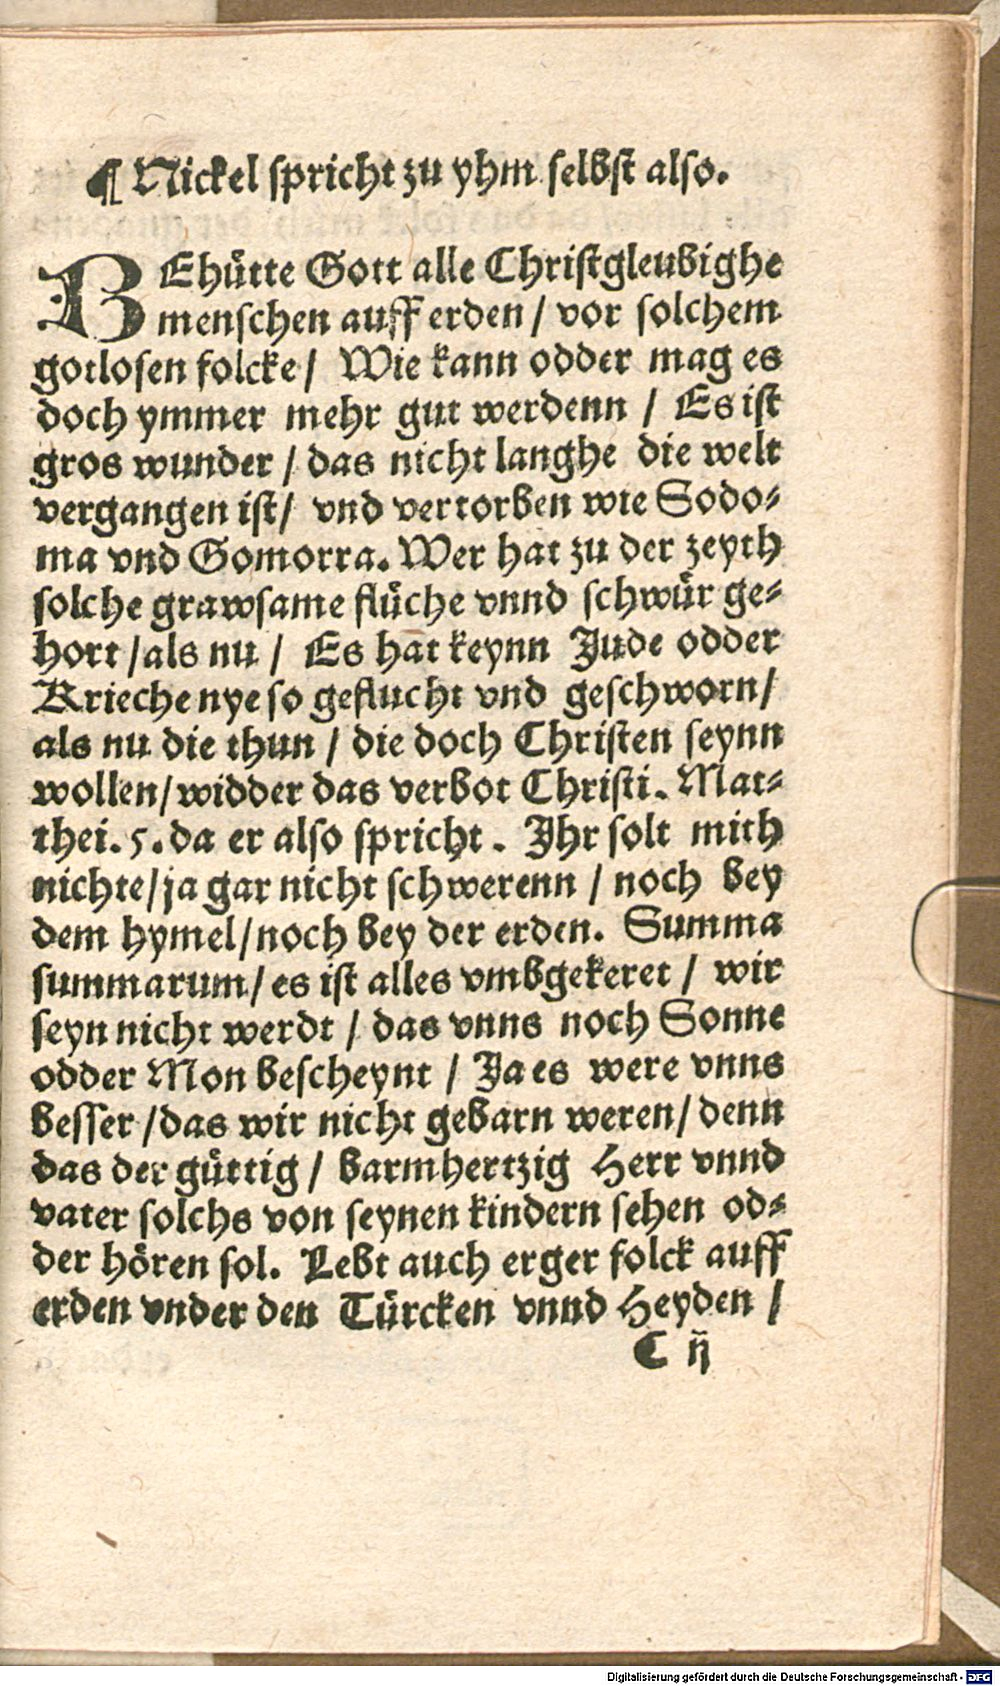 ¶ Nickel spricht zu yhm selbst also.
BEhütte Gott alle Christgleubighe
menschen auff erden / vor solchem
gotlosen folcke / Wie kann odder mag es
doch ymmer mehr gut werdenn / Es ist
gros wunder / das nicht langhe die welt
vergangen ist / vnd vertorben wie Sodo⸗
ma vnd Gomorra. Wer hat zu der zeyth
solche grawsame flüche vnnd schwür ge⸗
hort / als nu / Es hat keynn Jude odder
Krieche nye so geflucht vnd geschworn /
als nu die thun / die doch Christen seynn
wollen / widder das verbot Christi. Mat⸗
thei. 5. da er also spricht. Ihr solt mith
nichte / ja gar nicht schwerenn / noch bey
dem hymel / noch bey der erden. Summa
summarum / es ist alles vmbgekeret / wir
seyn nicht werdt / das vnns noch Sonne
odder Mon bescheynt / Ja es were vnns
besser / das wir nicht gebarn weren / denn
das der güttig / barmhertzig Herr vnnd
vater solchs von seynen kindern sehen od⸗
der hören sol. Lebt auch erger folck auff
erden vnder den Türcken vnnd Heyden /
C ij
Digitalisierung gefördert durch die Deutsche Forschungsgemeinschaft - DFG